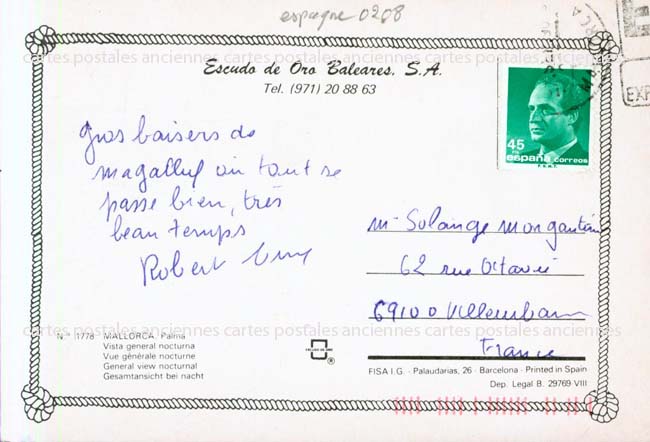 espagne 0208
Escudo de Oro Baleares. S.A.
Tel. (971) 20 88 63
cartes postales anciennes cartes postales anciennes cartes postales anciennes
45
españa correos
EXP
gros baisers de
magalluf où tout se
passe bien, très
beau temps
Robert
Solange
62 rue Octavie
69100 Villeurbanne
France
N.º 1778 MALLORCA. Palma
Vista general nocturna
Vue générale nocturne
General view nocturnal
Gesamtansicht bei nacht
cartes postales anciennes cartes postales anciennes cartes postales anciennes
ESCUDO DE ORO
®
FISA I.G. - Palaudarias, 26 - Barcelona - Printed in Spain
Dep. Legal B. 29769 VIII